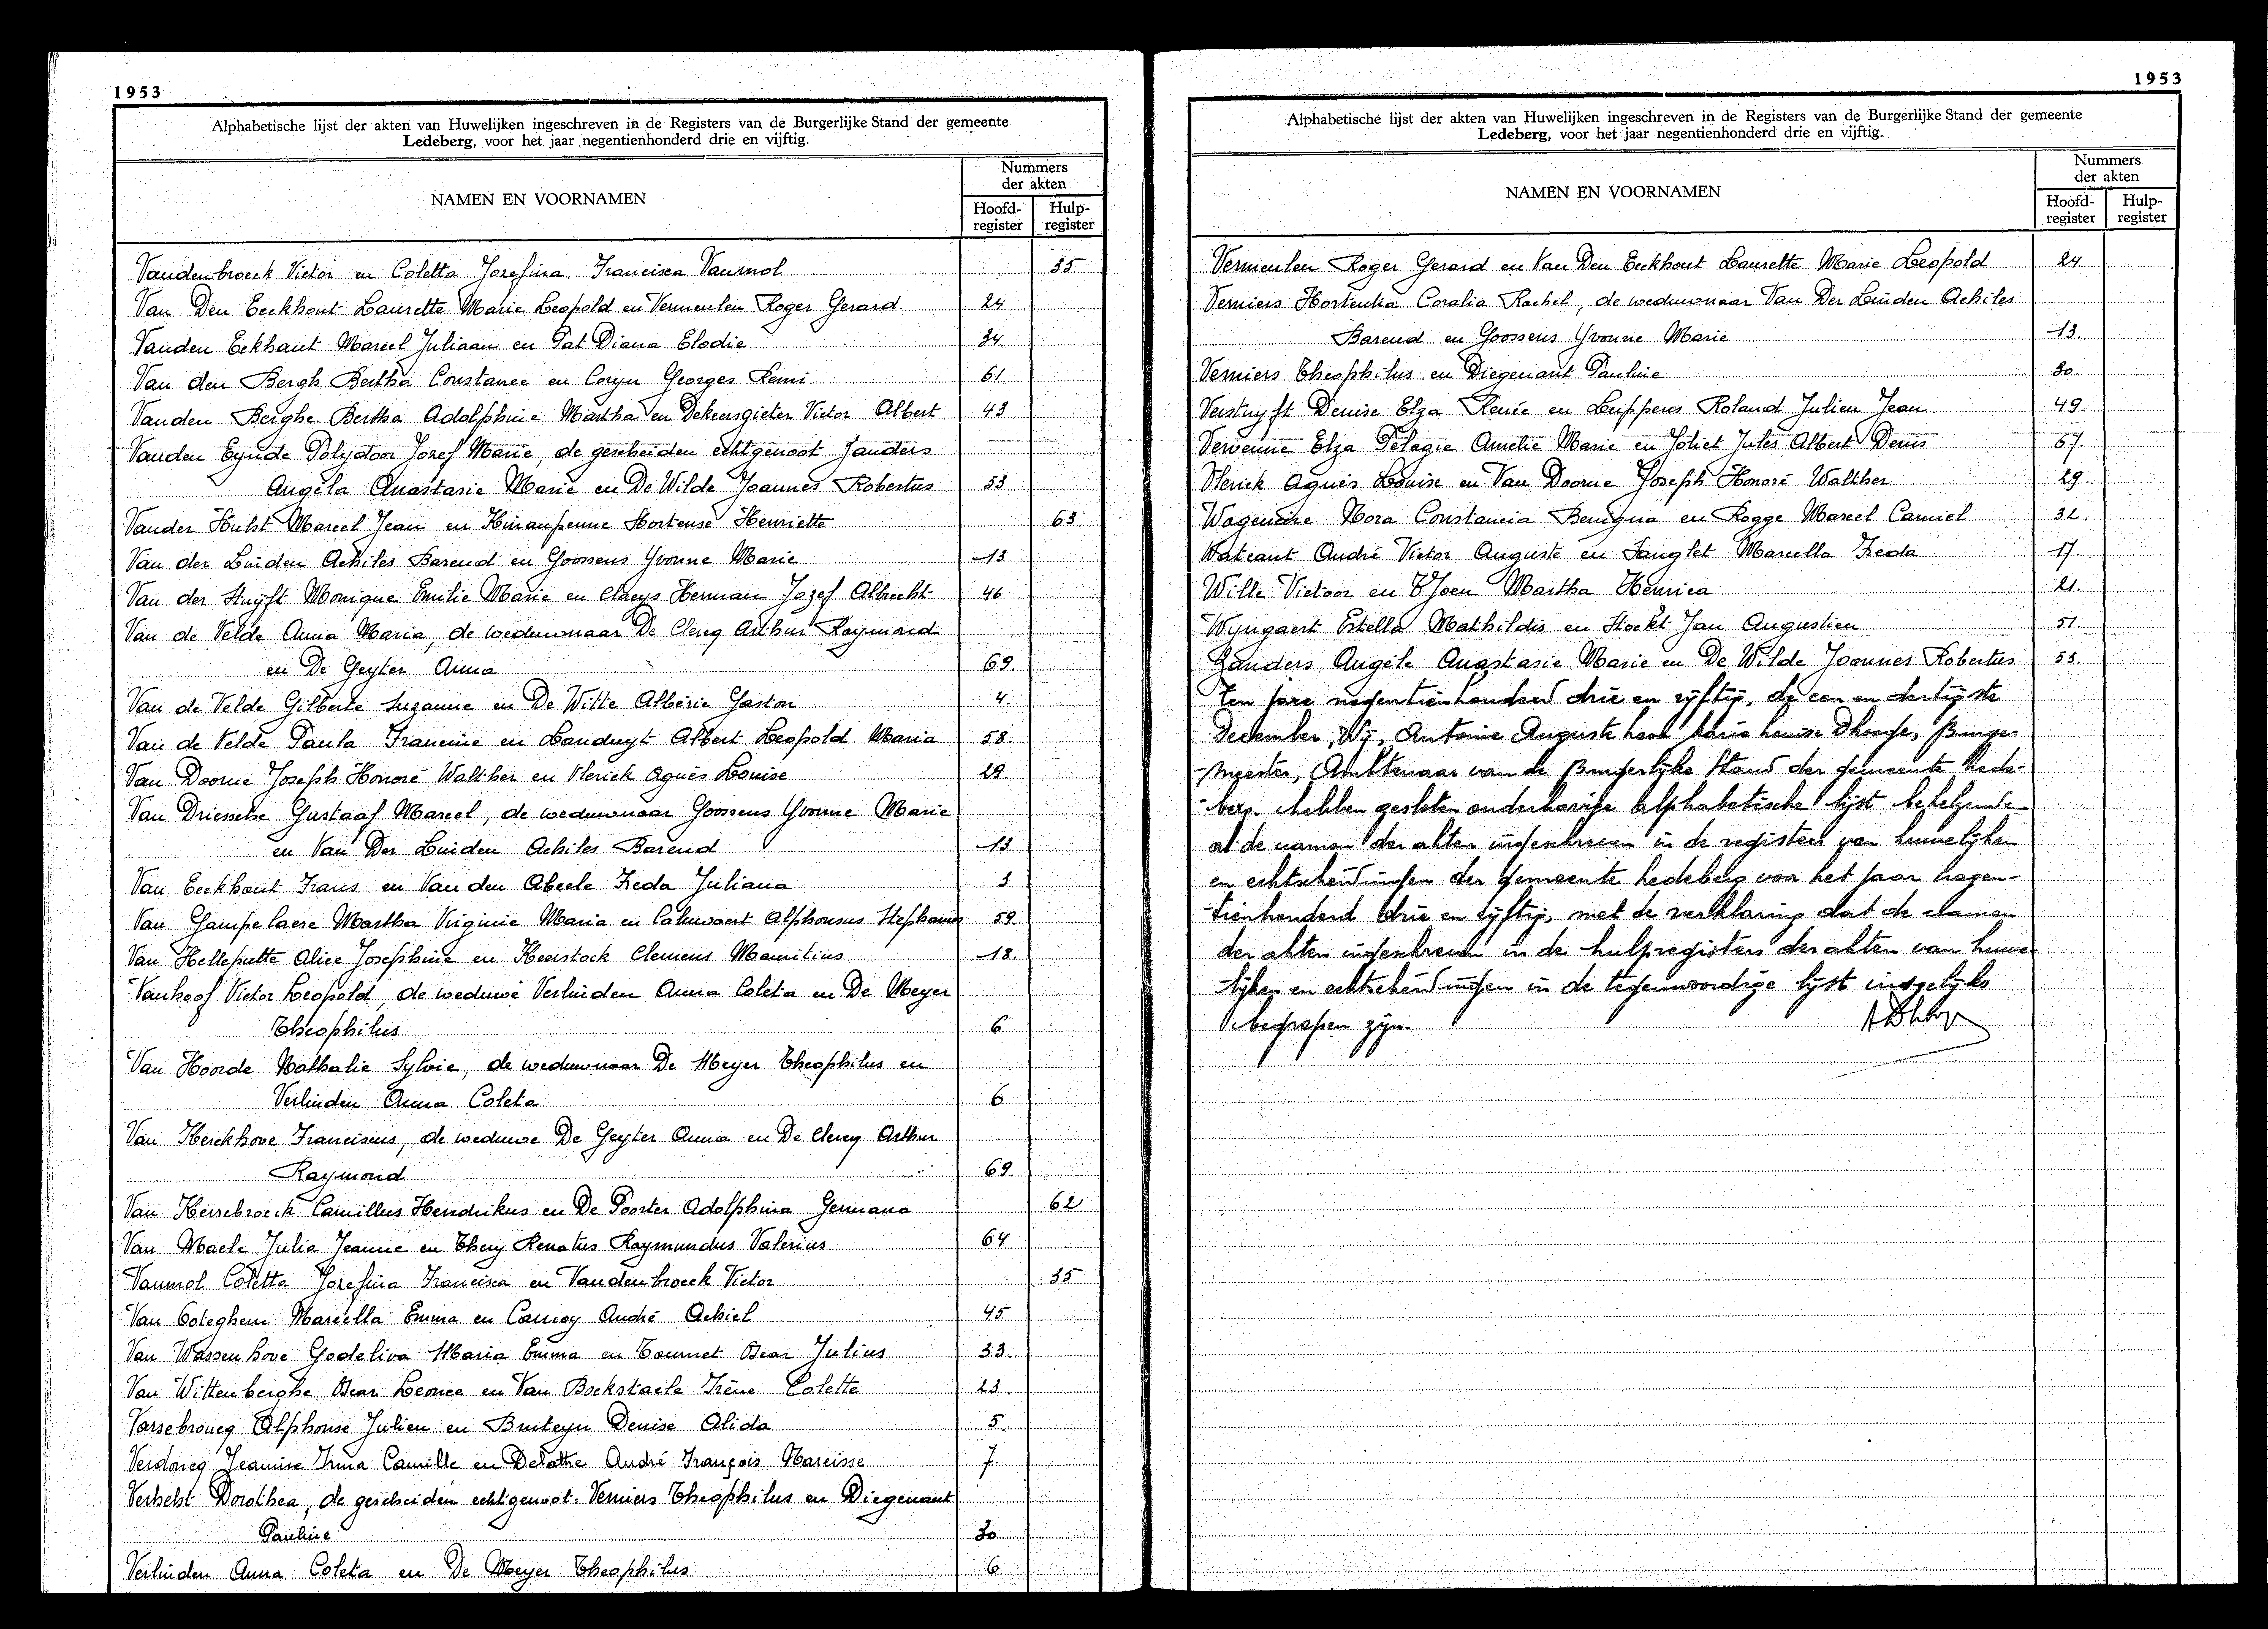 1953
Alphabetische lijst der akten van Huwelijken ingeschreven in de Registers van de Burgerlijke Stand der gemeente
Ledeberg, voor het jaar negentienhonderd drie en vijftig.
NAMEN EN VOORNAMEN
Nummers
der akten
Hoofd-
register
Hulp-
register
Vandenbroeck Victor en Coletta Josefina Francisca Vanmol 35
Van Den Eeckhout Laurette Marie Leopold en Vermeulen Roger Gerard 24
Vanden Eckhaut Marcel Juliaan en Pat Diana Elodie 34
Van den Bergh Bertha Constance en Coryn Georges Remi 61
Vanden Berghe Bertha Adolphine Martha en Dekeersgieter Victor Albert 43
Vanden Eynde Polydoor Jozef Marie, de gescheiden echtgenoot Janders
Angèla Anastasie Marie en De Wilde Joannes Robertus 53
Vander Hulst Marcel Jean en Hortense Henriette 63
Van der Linden Achiles Barend en Goossens Yvonne Marie 13
Van der Stuyft Monique Emilie Marie en Claeys Herman Jozef Albrecht 46
Van de Velde Anna Maria, de weduwnaar De Clercq Arthur Raymond
en De Geyter Anna 69
Van de Velde Gilberte Suzanne en De Witte Albéric Gaston 4
Van de Velde Paula Francine en Landuyt Albert Leopold Maria 58
Van Doorne Joseph Honoré Walther en Vlerick Agnès Louise 29
Van Driessche Gustaaf Marcel, de weduwnaar Goossens Yvonne Marie
en Van Der Linden Achiles Barend 13
Van Eeckhout Frans en Van den Abeele Freda Juliana 3
Van Gampelaere Martha Virginie Maria en Caluwaert Alphonsus Stephanus 59
Van Helleputte Alice Josephine en Heerstock Clemens Mauritius 18
Vanhoof Victor Leopold, de weduwe Verlinden Anna Coleta en De Meyer
Theophilus 6
Van Hoorde Nathalie Sylvie, de weduwnaar De Meyer Theophilus en
Verlinden Anna Coleta 6
Van Kerckhove Franciscus, de weduwe De Geyter Anna en De Clercq Arthur
Raymond 69
Van Herrebroeck Camillus Hendrikus en De Poorter Adolphina Germana 62
Van Maele Julia Jeanne en Thery Renatus Raymundus Valerius 64
Vanmol Coletta Josefina Francisca en Vandenbroeck Victor 35
Van Ooteghem Marcella Emma en Carnoy André Achiel 45
Van Wassenhove Godeliva Maria Emma en Tournet Oscar Julius 33
Van Wittenberghe Oscar Leonce en Van Bockstaele Irène Colette 23
Varsebroucq Alphonse Julien en Bruteyn Denise Alida 5
Verdoncq Jeanine Irma Camille en Delattre André François Narcisse 7
Verhelst Dorothea, de gescheiden echtgenoot Verniers Theophilus en Diegenant
Pauline 30
Verlinden Anna Coleta en De Meyer Theophilus 6
1953
Alphabetische lijst der akten van Huwelijken ingeschreven in de Registers van de Burgerlijke Stand der gemeente
Ledeberg, voor het jaar negentienhonderd drie en vijftig.
NAMEN EN VOORNAMEN
Nummers
der akten
Hoofd-
register
Hulp-
register
Vermeulen Roger Gerard en Van Den Eeckhout Laurette Marie Leopold 24
Verniers Hortentia Coralia Rachel, de weduwnaar Van Der Linden Achiles
Barend en Goossens Yvonne Marie 13
Verniers Theophilus en Diegenant Pauline 30
Verstuyft Denise Elza Renée en Luppens Roland Julien Jean 49
Vervenne Elza Pelagie Amelie Marie en Joliet Jules Albert Denis 67
Vlerick Agnès Louise en Van Doorne Joseph Honoré Walther 29
Wagenaire Nora Constancia Benigna en Rogge Marcel Camiel 32
Wateaut André Victor Auguste en Langlet Marcella Freda 17
Wille Victoor en T'Joen Martha Henrica 21
Wyngaert Estella Mathildis en Hockt Jan Augustien 51
Zanders Angèle Anastasie Marie en De Wilde Joannes Robertus 53
Ten jare negentienhonderd drie en vijftig, de een en dertigste
December, Wij, Antoine Auguste Leon Marie Louise Dhooge, Burge-
-meester, Ambtenaar van de Burgerlijke Stand der gemeente Lede-
-berg hebben gesloten onderhavige alphabetische lijst behelzende
al de namen der akten ingeschreven in de registers van huwelijken
en echtscheidingen der gemeente Ledeberg voor het jaar negen-
-tienhonderd drie en vijftig, met de verklaring dat de namen
der akten ingeschreven in de hulpregisters der akten van huwe-
-lijken en echtscheidingen in de tegenwoordige lijst insgelijks
begrepen zijn.